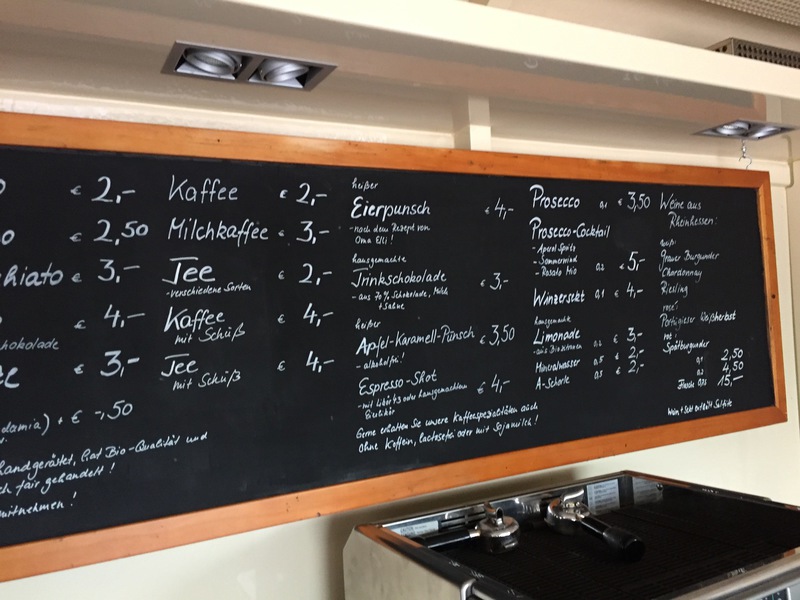 € 2,-
€ 2,50
hiato € 3,-
€ 4,-
chokolade
€ 3,-
damia) + € -,50
handgeröstet, hat Bio-Qualität und
ch fair gehandelt!
mitnehmen!
Kaffee € 2,-
Milchkaffee € 3,-
Tee € 2,-
- verschiedene Sorten
Kaffee € 4,-
mit Schuß
Tee € 4,-
mit Schuß
heißer
Eierpunsch € 4,-
- nach dem Rezept von
Oma Elli!
hausgemachte
Trinkschokolade € 3,-
- aus 70% Schokolade, Milch
+ Sahne
heißer
Apfel-Karamell-Punsch € 3,50
- alkoholfrei!
Espresso-Shot € 4,-
- mit Likör43 oder hausgemachtem
Eierlikör
Gerne erhalten Sie unsere Kaffeespezialitäten auch
ohne Koffein, lactosefrei oder mit Sojamilch!
Prosecco 0,1 € 3,50
Prosecco-Cocktail
- Aperol Spritz
- Sommerwind
- Rosato Mio 0,2 € 5,-
Winzersekt 0,1 € 4,-
hausgemachte
Limonade 0,2 € 3,-
- aus Biozitronen
Mineralwasser 0,5 € 2,-
A-Schorle 0,3 € 2,-
Weine aus
Rheinhessen:
weiß:
grauer Burgunder
Chardonnay
Riesling
rosé:
Portugieser Weißherbst
rot:
Spätburgunder
0,1 2,50
0,2 4,50
Flasche 0,75 15,-
Wein + Sekt enthält Sulfite